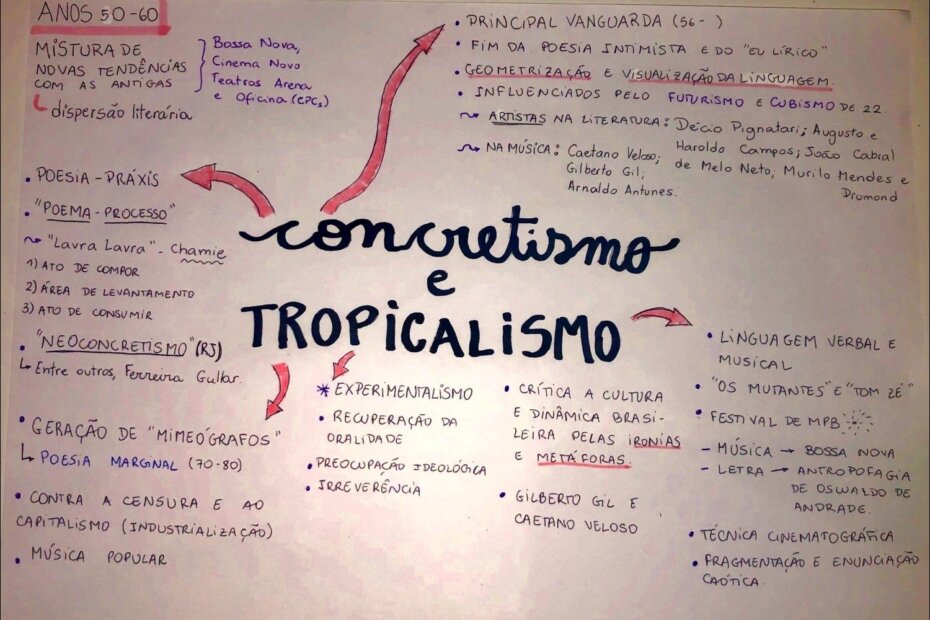 ANOS 50-60
MISTURA DE
NOVAS TENDÊNCIAS
COM AS ANTIGAS
Bossa Nova,
Cinema Novo
Teatros Arena
e Oficina (CPCs)
dispersão literária
• PRINCIPAL VANGUARDA (56- )
• FIM DA POESIA INTIMISTA E DO "EU LÍRICO"
• GEOMETRIZAÇÃO E VISUALIZAÇÃO DA LINGUAGEM.
• INFLUENCIADOS PELO FUTURISMO E CUBISMO DE 22
ARTISTAS NA LITERATURA: Décio Pignatari; Augusto e
Haroldo Campos; João Cabral
de Melo Neto, Murilo Mendes e
Drumond
NA MÚSICA: Caetano Veloso;
Gilberto Gil;
Arnaldo Antunes.
• POESIA-PRÁXIS
• "POEMA-PROCESSO"
"Lavra Lavra" - Chamie
1) ATO DE COMPOR
2) ÁREA DE LEVANTAMENTO
3) ATO DE CONSUMIR
• "NEOCONCRETISMO" (RJ)
Entre outros, Ferreira Gullar.
concretismo
e
TROPICALISMO
• GERAÇÃO DE "MIMEÓGRAFOS"
POESIA MARGINAL (70-80)
• CONTRA A CENSURA E AO
CAPITALISMO (INDUSTRIALIZAÇÃO)
• MÚSICA POPULAR
* EXPERIMENTALISMO
• RECUPERAÇÃO DA
ORALIDADE
• PREOCUPAÇÃO IDEOLÓGICA
• IRREVERÊNCIA
• CRÍTICA A CULTURA
E DINÂMICA BRASI-
LEIRA PELAS IRONIAS
E METÁFORAS.
• GILBERTO GIL E
CAETANO VELOSO
• LINGUAGEM VERBAL E
MUSICAL
• "OS MUTANTES" E "TOM ZÉ"
• FESTIVAL DE MPB
- MÚSICA → BOSSA NOVA
- LETRA → ANTROPOFAGIA
DE OSWALDO DE
ANDRADE.
• TÉCNICA CINEMATOGRÁFICA
• FRAGMENTAÇÃO E ENUNCIAÇÃO
CAÓTICA.